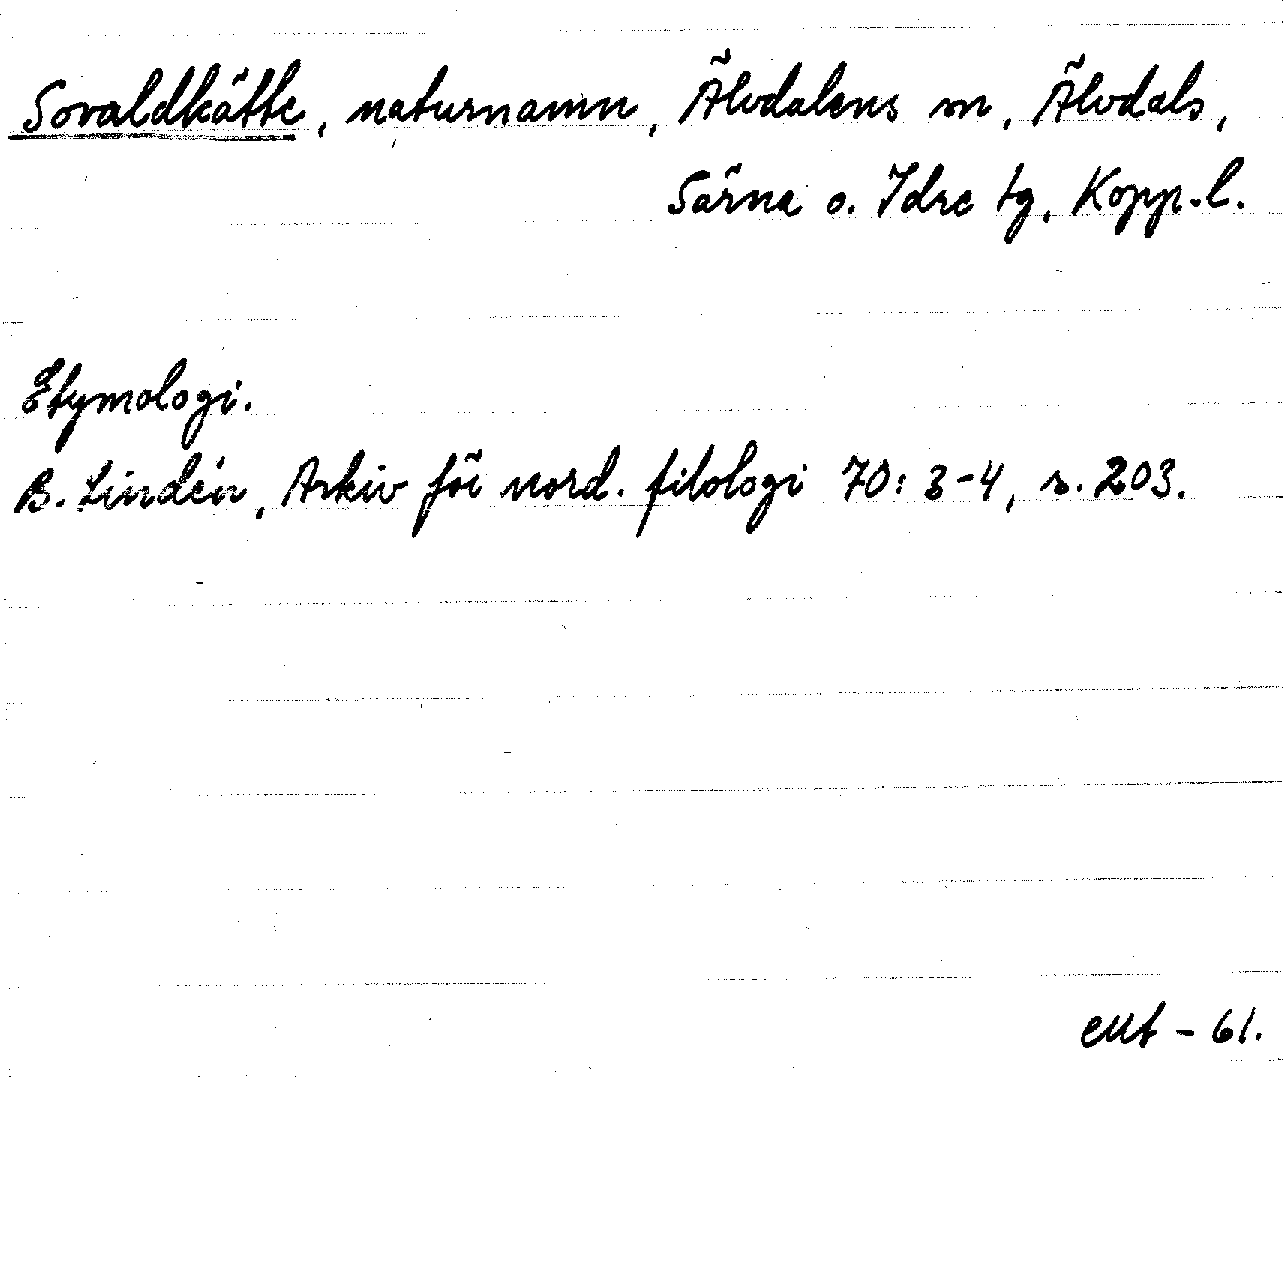 Sovaldkätte, naturnamn, Älvdalens sn, Älvdals,
Särna o. Idre tg, Kopp.l.
Etymologi.
B. Lindén, Arkiv för nord. filologi 70: 3-4, s. 203.
- 61.